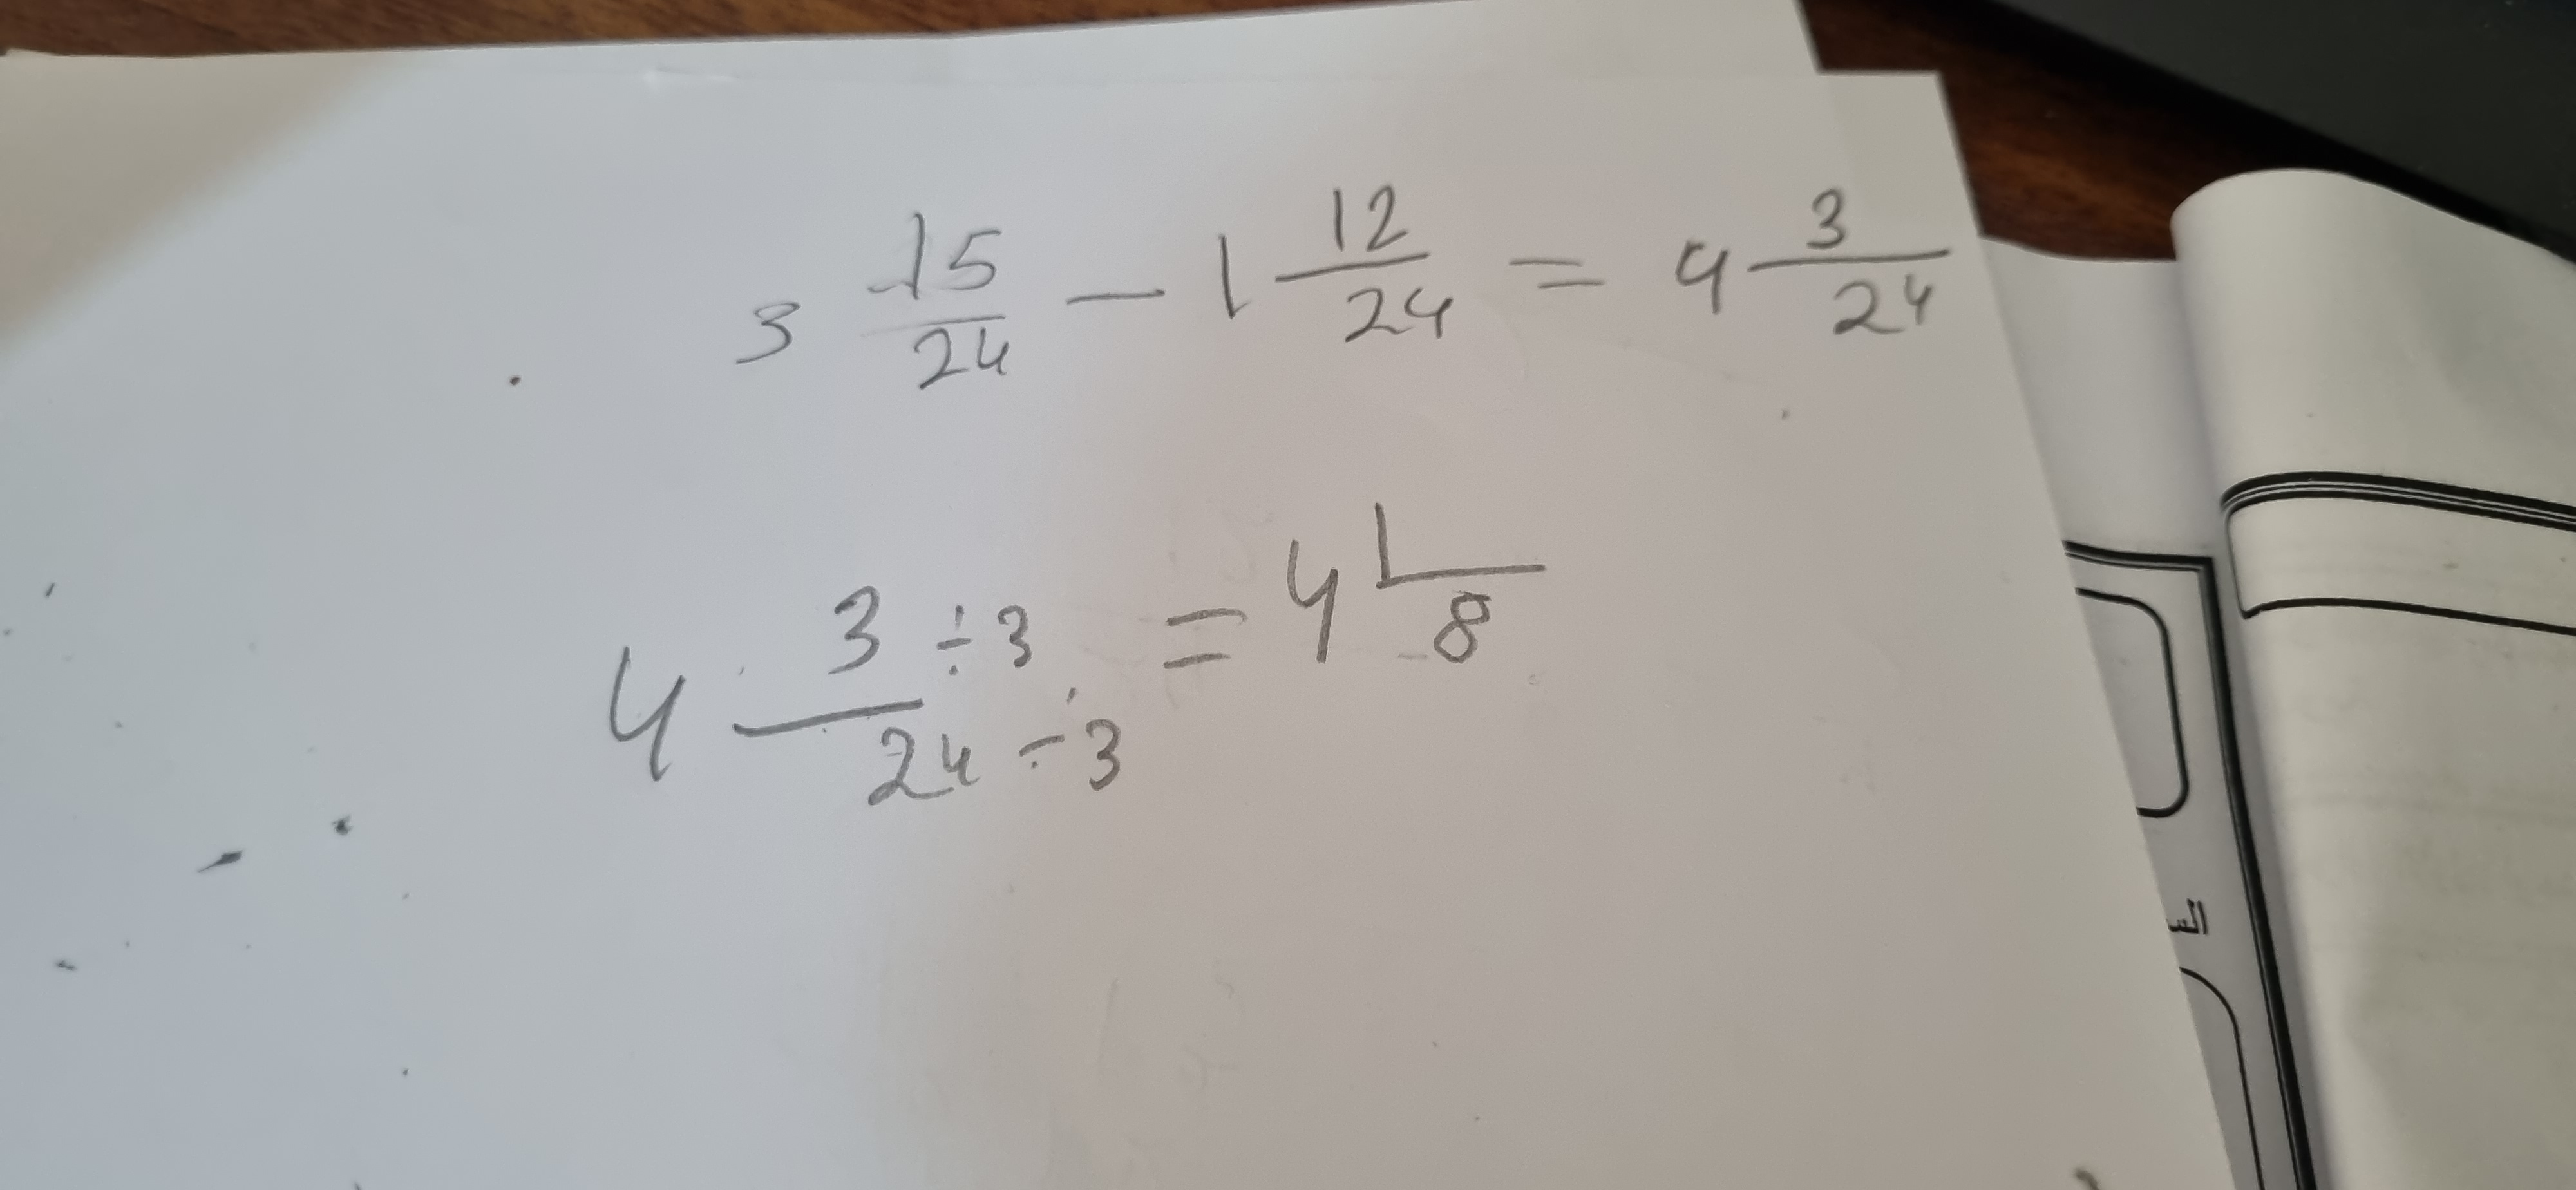 3 15/24 − 1 12/24 = 4 3/24
4 3÷3/24÷3 = 4 1/8
الس